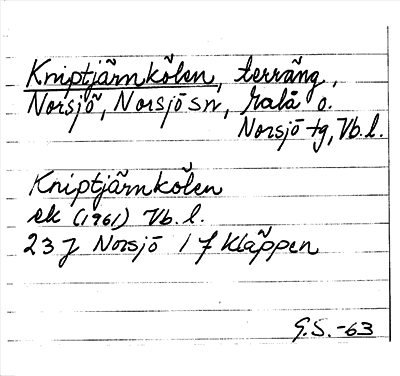 Kniptjärnkölen, terräng,
Norsjö, Norsjö sn, Malå o.
Norsjö tg, Vb. l.
Kniptjärnkölen
ek (1961) Vb. l.
23 J Norsjö 1 f Kläppen
G.S. -63